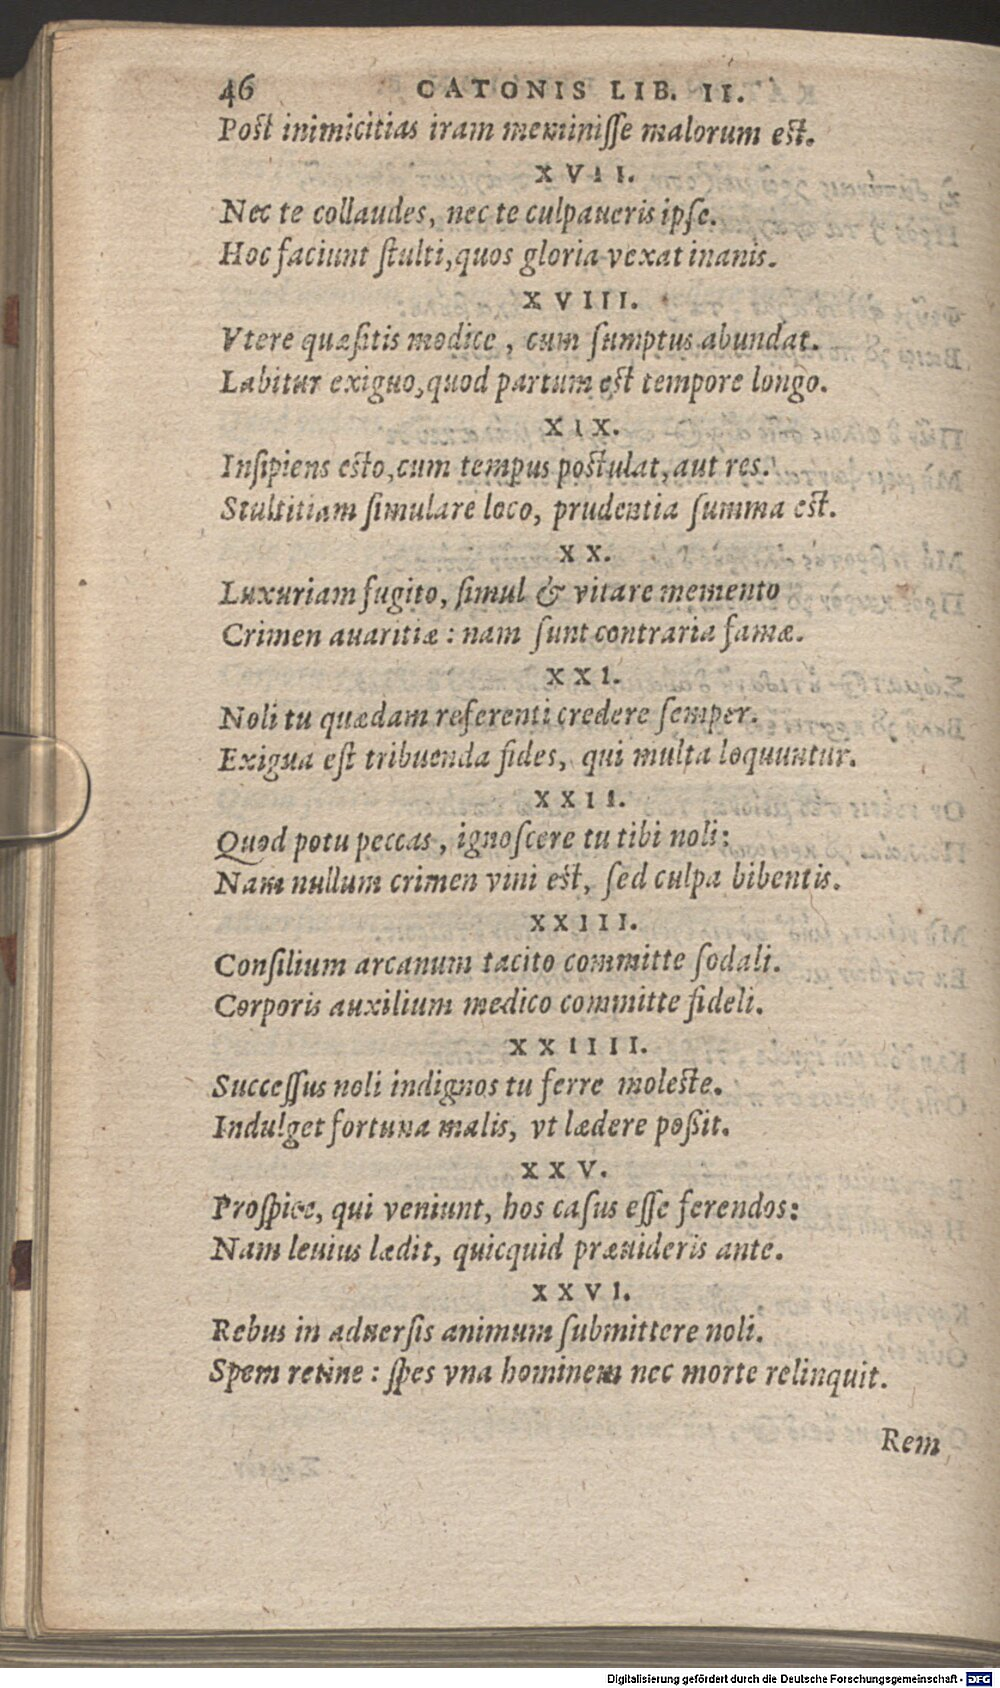 46 CATONIS LIB. II.
Post inimicitias iram meminiſſe malorum est.
XVII.
Nec te collaudes, nec te culpaueris ipſe.
Hoc faciunt ſtulti, quos gloria vexat inanis.
XVIII.
Vtere quæſitis modice, cum ſumptus abundat.
Labitur exiguo, quod partum est tempore longo.
XIX.
Inſipiens esto, cum tempus postulat, aut res.
Stultitiam ſimulare loco, prudentia ſumma est.
XX.
Luxuriam fugito, ſimul & vitare memento
Crimen auaritiæ: nam ſunt contraria famæ.
XXI.
Noli tu quædam referenti credere ſemper.
Exigua eſt tribuenda fides, qui multa loquuntur.
XXII.
Quod potu peccas, ignoſcere tu tibi noli:
Nam nullum crimen vini est, ſed culpa bibentis.
XXIII.
Conſilium arcanum tacito committe ſodali.
Corporis auxilium medico committe fideli.
XXIIII.
Succeſſus noli indignos tu ferre moleste.
Indulget fortuna malis, vt lædere poßit.
XXV.
Proſpice, qui veniunt, hos caſus eſſe ferendos:
Nam leuius lædit, quicquid præuideris ante.
XXVI.
Rebus in aduerſis animum ſubmittere noli.
Spem retine: ſpes vna hominem nec morte relinquit.
Rem
Digitalisierung gefördert durch die Deutsche Forschungsgemeinschaft - DFG